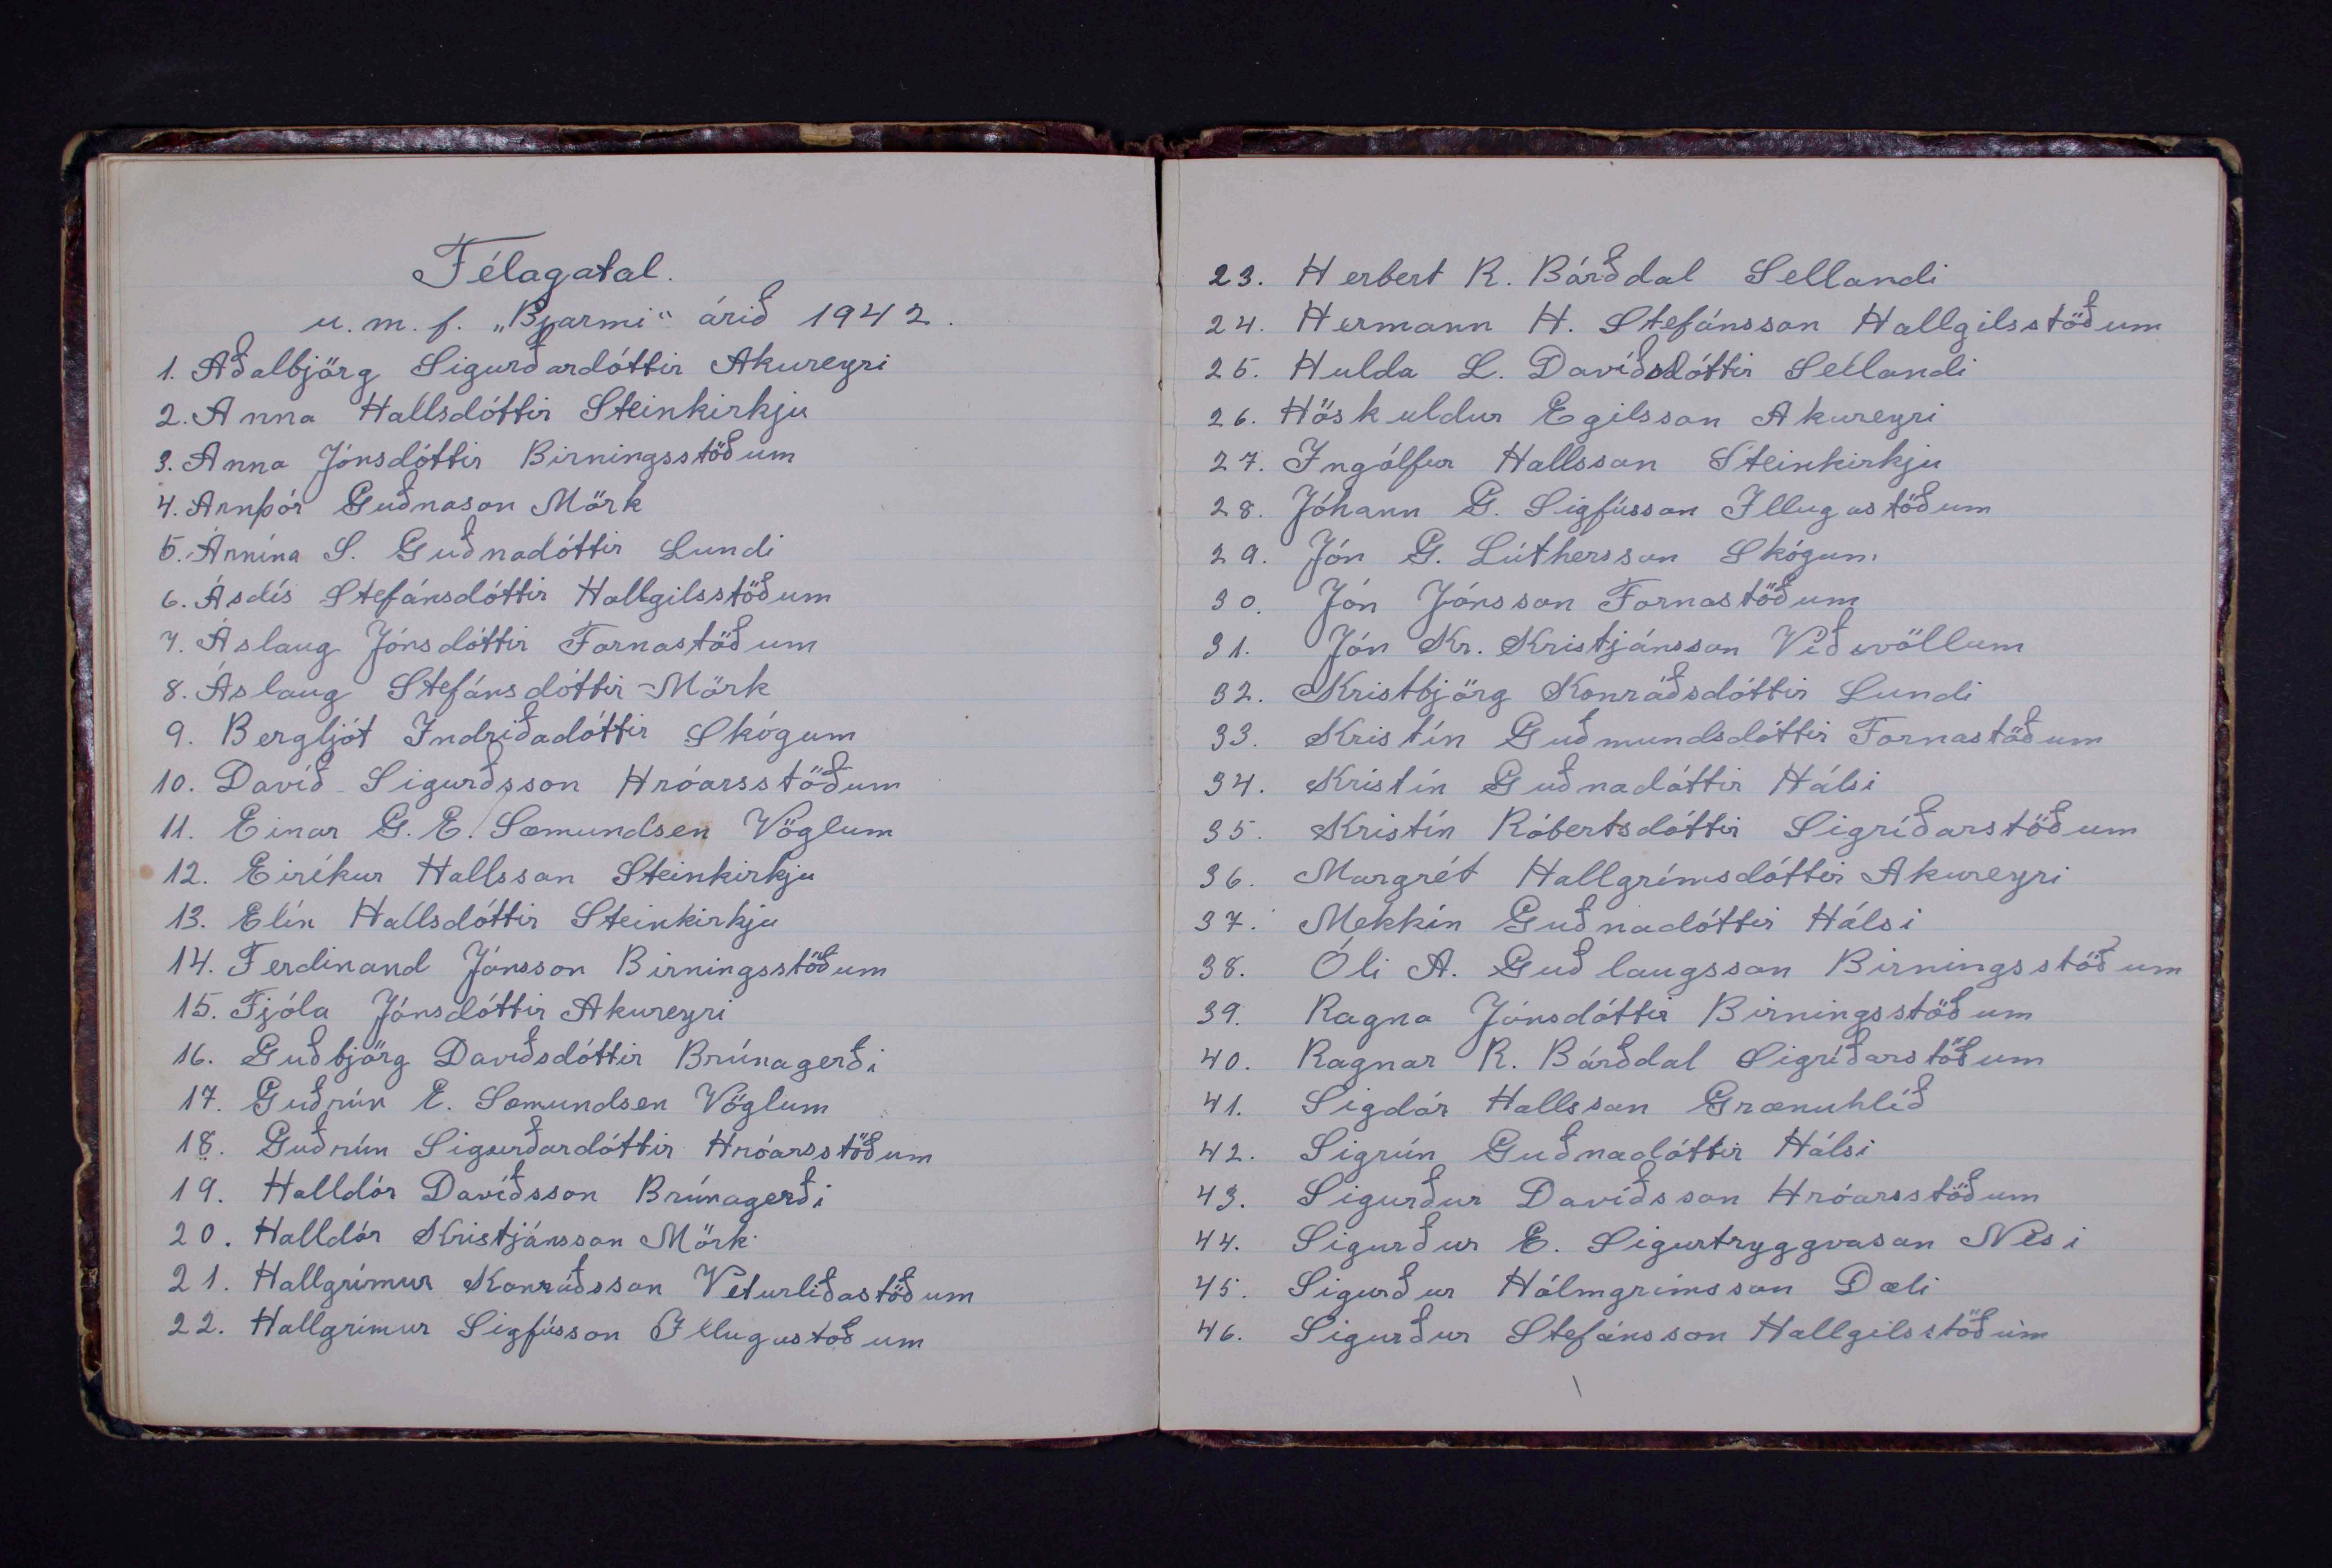 Félagatal.
u. m. f. „Bjarmi" árið 1942.
1. Aðalbjörg Sigurðardóttir Akureyri
2. Anna Hallsdóttir Steinkirkju
3. Anna Jónsdóttir Birningsstöðum
4. Arnþór Guðnason Mörk
5. Árnína S. Guðnadóttir Lundi
6. Ásdís Stefánsdóttir Hallgilsstöðum
7. Áslaug Jónsdóttir Fornastöðum
8. Áslaug Stefánsdóttir - Mörk
9. Bergljót Indriðadóttir Skógum
10. Davíð Sigurðsson Hróarsstöðum
11. Einar G. E. Sæmundsen Vöglum
12. Eiríkur Hallsson Steinkirkju
13. Elín Hallsdóttir Steinkirkju
14. Ferdinand Jónsson Birningsstöðum
15. Fjóla Jónsdóttir Akureyri
16. Guðbjörg Davíðsdóttir Brúnagerði
17. Guðrún E. Sæmundsen Vöglum
18. Guðrún Sigurðardóttir Hróarsstöðum
19. Halldór Davíðsson Brúnagerði
20. Halldór Kristjánsson Mörk
21. Hallgrímur Konráðsson Veturliðastöðum
22. Hallgrímur Sigfússon Illugastöðum
23. Herbert R. Bárðdal Sellandi
24. Hermann H. Stefánsson Hallgilsstöðum
25. Hulda L. Davíðsdóttir Sellandi
26. Höskuldur Egilsson Akureyri
27. Ingólfur Hallsson Steinkirkju
28. Jóhann G. Sigfússon Illugastöðum
29. Jón G. Lúthersson Skógum
30. Jón Jónsson Fornastöðum
31. Jón Kr. Kristjánsson Víðivöllum
32. Kristbjörg Konráðsdóttir Lundi
33. Kristín Guðmundsdóttir Fornastöðum
34. Kristín Guðnadóttir Hálsi
35. Kristín Róbertsdóttir Sigríðarstöðum
36. Margrét Hallgrímsdóttir Akureyri
37. Mekkín Guðnadóttir Hálsi
38. Óli A. Guðlaugsson Birningsstöðum
39. Ragna Jónsdóttir Birningsstöðum
40. Ragnar R. Bárðdal Sigríðarstöðum
41. Sigdór Hallsson Grænuhlíð
42. Sigrún Guðnadóttir Hálsi
43. Sigurður Davíðsson Hróarsstöðum
44. Sigurður E. Sigurtryggvason Nesi
45. Sigurður Hólmgrímsson Dæli
46. Sigurður Stefánsson Hallgilsstöðum